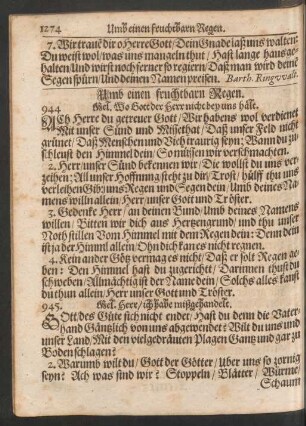 1274 Umb einen fruchtbarn Regen.
7. Wir traue dir o Herre Gott/ Dein Gnade laß uns walten:
Du weist wol/ was uns mangeln thut/ Hast lange haus ge-
halten/ Und wirst noch ferner so regiern/ Daß man wird deine
Segen spürn/ Und deinen Namen preisen. Barth. Ringwalt.
Umb einen fruchtbarn Regen.
944 Mel. Wo Gott der Herr nicht bey uns hält.
ACh Herre du getreuer Gott/ Wir habens wol verdienet
Mit unser Sünd und Missethat/ Daß unser Feld nicht
grünet/ Daß Menschen und Vieh traurig seyn: Wann du zu-
schleust den Himmel dein/ So müssen wir verschmachten.
2. Herr unser Sünd bekennen wir: Die wollst du uns ver-
zeihen: All unser Hoffnung steht zu dir/ Trost/ hülff thu uns
verleihen: Gib uns Regen und Segen dein/ Umb deines Na-
mens willn allein/ Herr/ unser Gott und Tröster.
3. Gedenke Herr/ an deinen Bund/ Umb deines Namens
willen/ Bitten wir dich aus Hertzengrund/ und thu unser
Noth stillen Von Himmel mit dem Regen dein: Denn dein
ist ja der Himmel allein/ Ohn dich kan es nicht regnen.
4. Kein ander Götz vermag es nicht/ Daß er solt Regen ge-
ben: Den Himmel hast du zugericht/ Darinnen thust du
schweben/ Allmächtig ist der Name dein/ Solchs alles kanst
du thun allein/ Herr unser Gott und Tröster.
945. Mel. Herr/ ich habe mißgehandelt.
GOtt/ des Güte sich nicht endet: Hast du denn die Vater-
hand Gäntzlich von uns abgewendet? Wilt du uns und
unser Land/ Mit den vielgedräuten Plagen Gantz und gar zu
Boden schlagen?
2. Warumb wilt du/ Gott der Götter/ Uber uns so zornig
seyn? Ach was sind wir? Stoppeln/ Blätter/ Würme/
Schaum